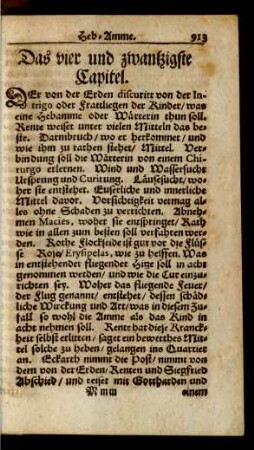 Heb-Amme. 913
Das vier und zwantzigste
Capitel.
DEr von der Erden discurirt von der In-
trigo oder Frattliegen der Kinder/was
eine Hebamme oder Wärterin thun soll.
Rente weiset unter vielen Mitteln das be-
ste. Darmbruch/ wo er herkommet / und
wie ihm zu rathen stehet/ Mittel. Ver-
bindung soll die Wärterin von einem Chi-
rurgo erlernen. Wind und Wassersucht
Ursprung und Curirung. Läusesucht/wo-
her sie entstehet. Euserliche und innerliche
Mittel davor. Vorsichtigkeit vermag al-
les ohne Schaden zu verrichten. Abneh-
men Macies, woher sie entspringet/ Rath
wie in allen zum besten soll verfahren wer-
den. Rothe Flockseide ist gut vor die Flüs-
se Rose/ Erysipelas, wie zu helffen. Was
in entstehender fliegender Hitze soll in acht
genommen werden/ und wie die Cur einzu-
richten sey. Woher das fliegende Feuer/
der Flug genannt/ entstehet/ dessen schäd-
liche Wirckung und Art/was in diesem Zu-
fall so wohl die Amme als das Kind in
acht nehmen soll. Rente hat diese Kranck-
heit selbst erlitten/ saget ein bewertes Mit-
tel solche zu heben/ gelangen ins Quartier
an. Eckarth nimmt die Post/ nimmt von
dem von der Erden/Renten und Siegfried
Abschied/ und reiset mit Gottharden und
Mmm einem